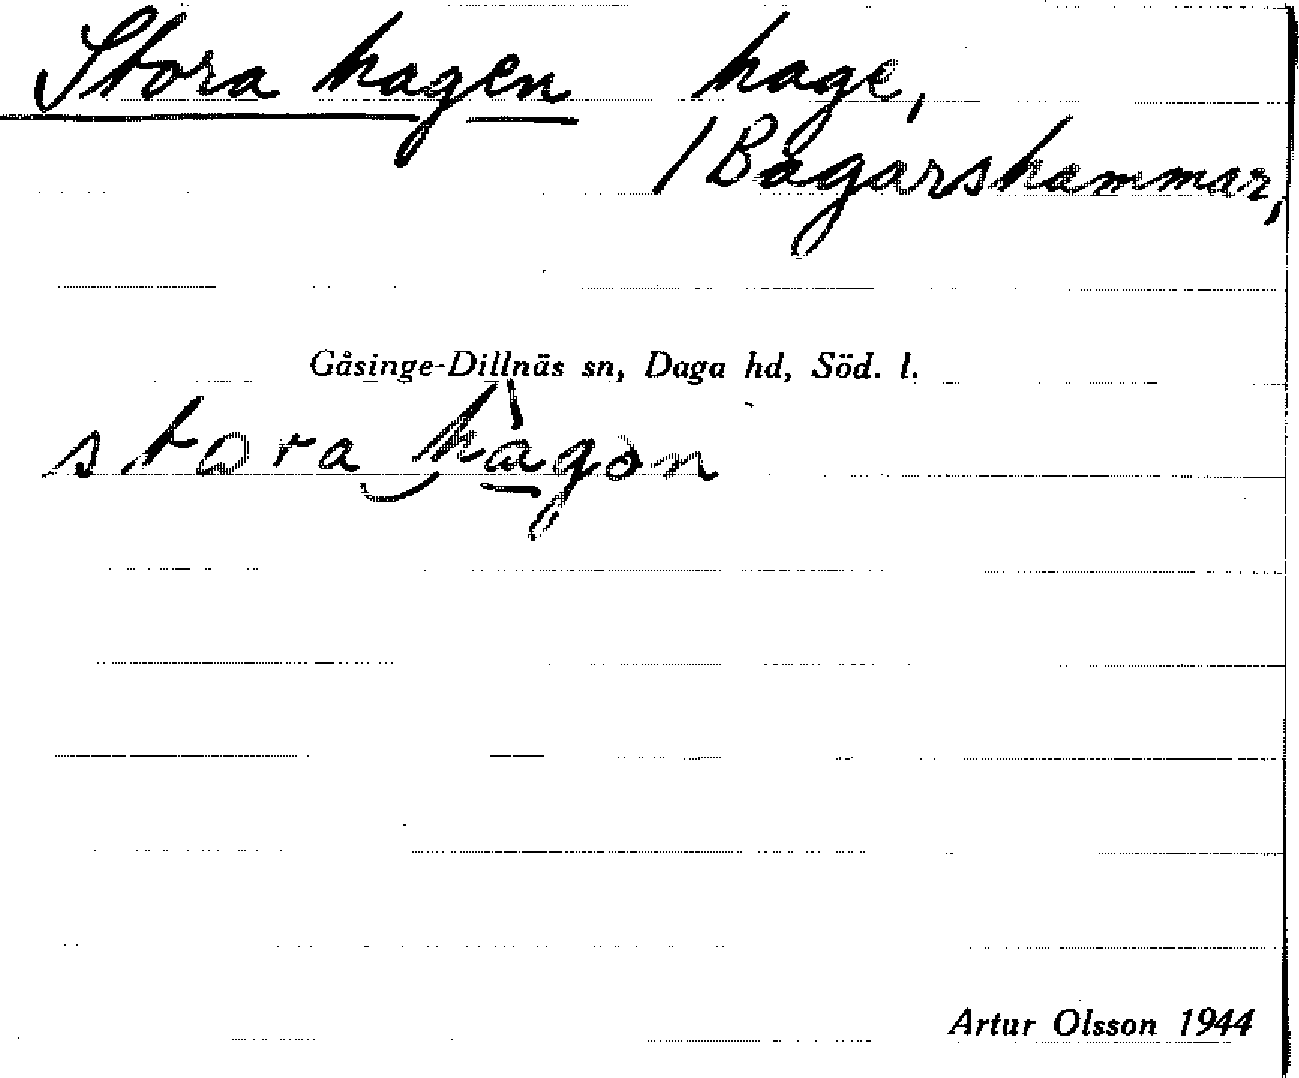 Stora hagen hage,
/ Bagarshammar,
Gåsinge-Dillnäs sn, Daga hd, Söd. l.
stora hàgon
Artur Olsson 1944